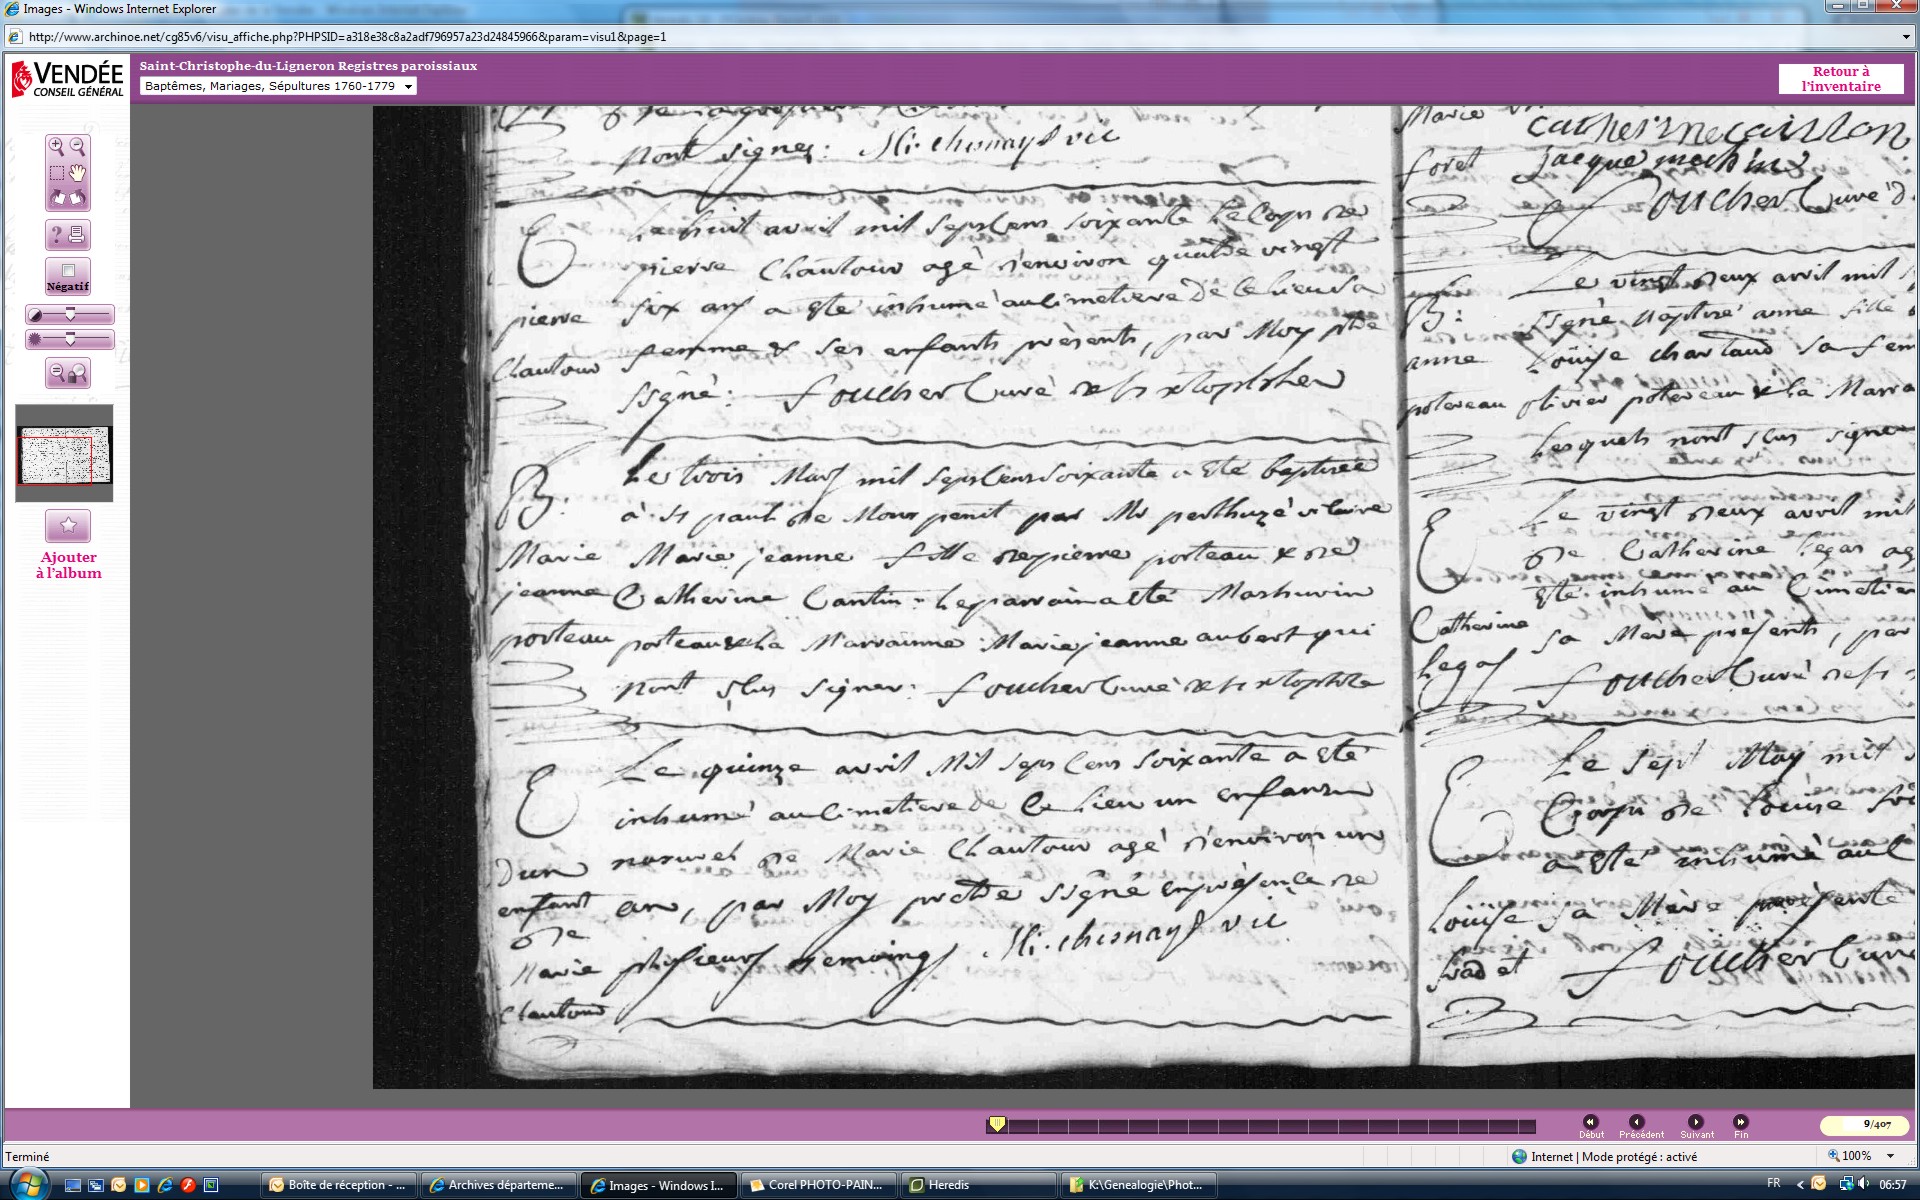 Images - Windows Internet Explorer
http://www.archinoe.net/cg85v6/visu_affiche.php?PHPSID=a318e38c8a2adf796957a23d24845966&param=visu1&page=1
VENDÉE
CONSEIL GÉNÉRAL
Saint-Christophe-du-Ligneron Registres paroissiaux
Baptêmes, Mariages, Sépultures 1760-1779
Retour à
l'inventaire
Négatif
Ajouter
à l'album
nont signer:
Le huit avril mil sept Cens soixante Le Corps de
pierre Chautour agé d'environ quatre vingt
six ans a été inhumé au Cimetiere de ce lieu sa
femme & ses enfants présents, par Moy ptre
ssigné: Foucher Curé de
pierre
Chautour
B:
Le trois Mars mil sept Cens soixante a été baptisée
à St paul de Mont penit par Mr
Marie jeanne fille de pierre porteau & de
Catherine Cantin: le parrain a été Mathurin
porteau & la Marrainne Marie jeanne aubert qui
nont sçus signer: Foucher Curé de
Marie
jeanne
porteau
Le quinze avril Mil sept Cens soixante a été
inhumé au Cimetiere de Ce Lieu un enfant
naturel de Marie Chautour agé d'environ un
an, par Moy prêtre ssigné en présence de
plusieurs temoings
D'un
enfant
de
Marie
Chautour
Marie
foret
catherine caillon
jacque mechin
Foucher Curé d
Le vingt deux avril mil
ssigné Baptisé anne fille
Louise chartaud sa fem
olivier potereau & la Marra
Lesquels nont sçus signer
B:
anne
potereau
Le vingt deux avril mil
de Catherine Legas ag
été inhumé au Cimetier
sa Mere presents, par
Foucher Curé de
Catherine
Legas
Le sept May mil
Corps de Louise
a été inhumé au C
sa Mère présente
Foucher Curé
Louise
9/407
Début
Précédent
Suivant
Fin
Terminé
Internet | Mode protégé : activé
100%
Boîte de réception - ...
Archives départeme...
Images - Windows I...
Corel PHOTO-PAIN...
Heredis
K:\Genealogie\Phot...
FR
06:57